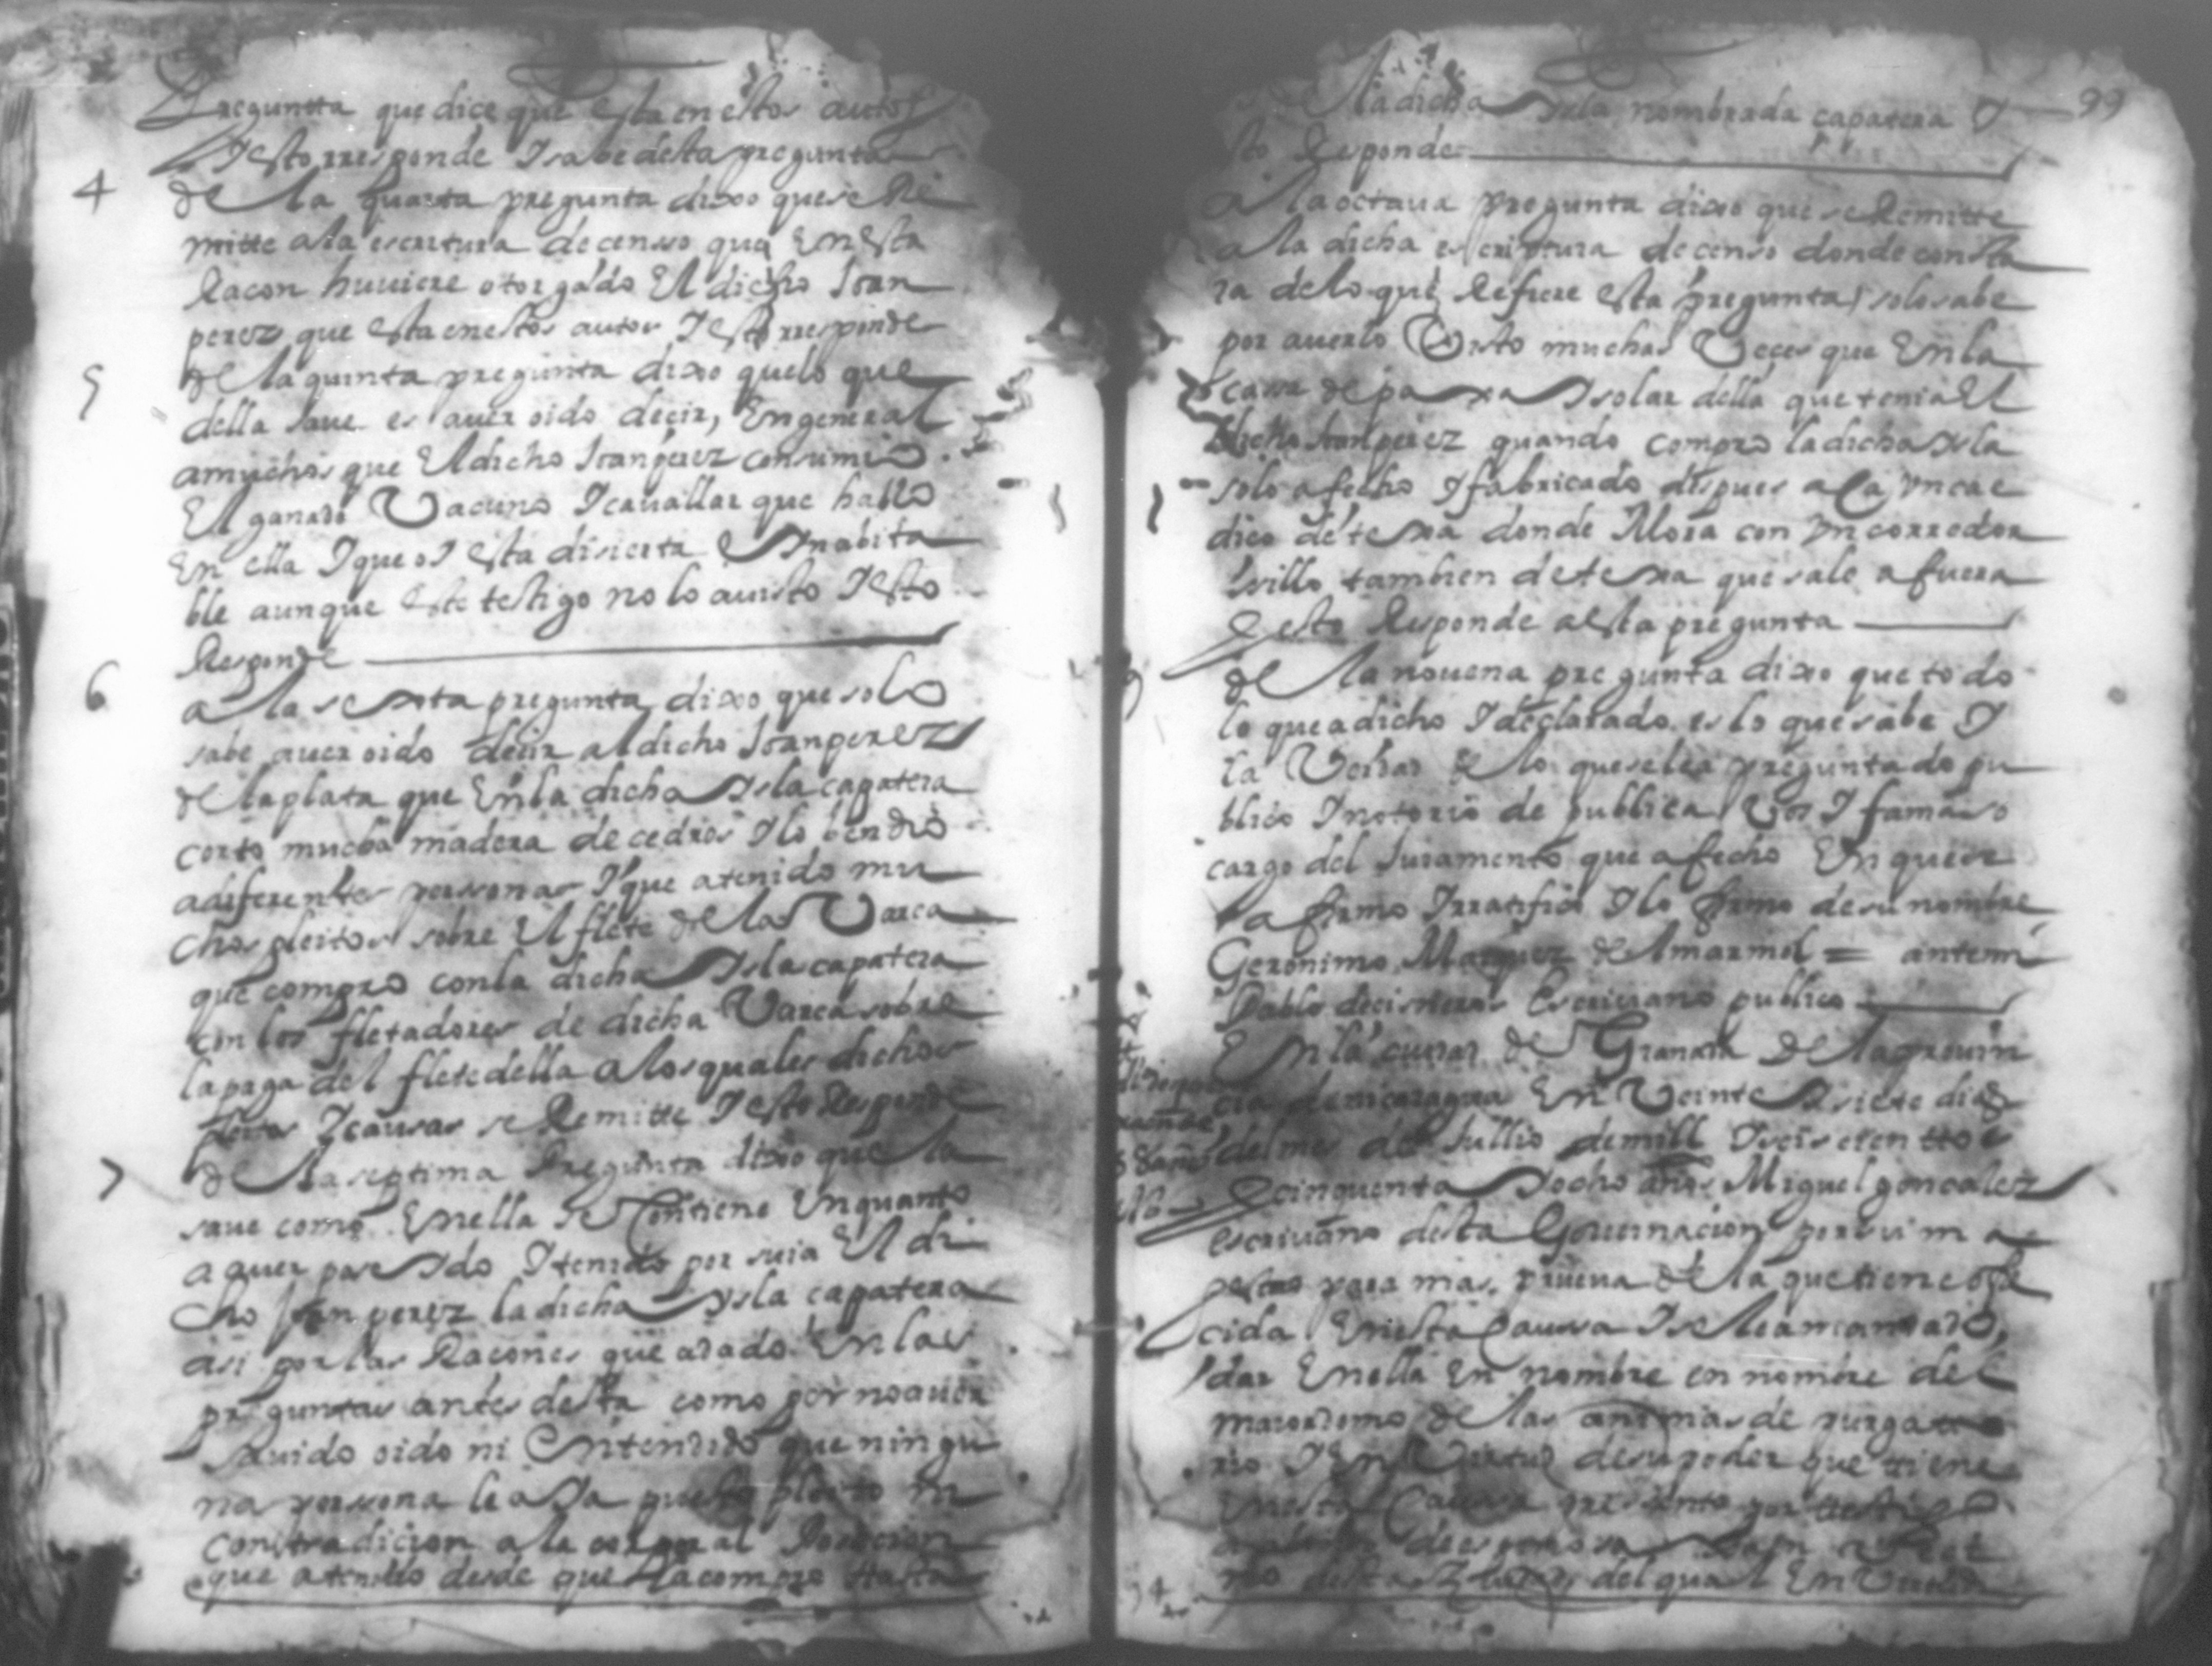 Pregunta que dice que esta en estos autos
Y esto rresponde Y sabe desta pregunta
4 de la quarta pregunta dixo que se Re
mitte a la escritura de censso que En Esta
Racon huuiere otorgado El dicho Joan
perez que esta en estos autos Y esto rresponde
5 de la quinta pregunta dixo que lo que
della saue es auer oido decir, En general
a muchos que El dicho Joan perez consumio
El ganado Vacuno Y cauallar que hallo
En ella Y que oy esta disierta E Ynabita
ble aunque este testigo no lo a uisto Y esto
Responde
6 a la sexsta pregunta dixo que solo
sabe auer oido decir al dicho Joan perez
de la plata que En la dicha Ysla capatera
corto mucha madera de cedros Y lo bendio
a diferentes perssonas Y que a tenido mu
chos pleitos sobre El flete de la Varca
que compro con la dicha Ysla capatera
con los fletadores de dicha Varca sobre
la paga del flete della a los quales dichos
pleitos Y causas se Remitte Y esto Responde
7 de la septima Pregunta dixo que la
saue como En ella se Contiene En quanto
a auer poseydo Y tenido por suia El di
cho Joan perez la dicha ysla capatera
asi por las Racones que a dado En las
preguntas antes desta como por no auer
sauido oido ni Entendido que ningu
na perssona le aya puesto pleito ni
contradicion a la corporal Posecion
que a tenido desde que la compro Hasta
99
la dicha Ysla nombrada capatera Y
esto Responde
a la octaua pregunta dixo que se Remitte
a la dicha escriptura de censo donde consta
ra de lo que Refiere esta pregunta Y solo sabe
por auerlo Visto muchas Veces que En la
cassa de paxa Y solar della que tenia El
dicho Joan perez quando compro la dicha Ysla
solo a fecho Y fabricado despues aca Vn cae
dico de texa donde Mora con Vn corredor
sillo tambien de texa que sale a fuera
Y esto Responde a esta pregunta
de la nouena pregunta dixo que todo
lo que a dicho Y declarado es lo que sabe Y
la Verdad de lo que se le a preguntado pu
blico Y notorio de publica Vos Y fama so
cargo del Juramento que a fecho En que se
a firmo Y rratifico Y lo firmo de su nombre
Geronimo Marquez del marmol = ante mi
Pablo de cisneros Escriuano publico
En la ciudad de Granada de la prouin
cia de nicaragua En Veinte Y siete dias
del mes de Jullio de mill Y seiscienttos
Y cinquenta Y ocho años Miguel goncalez
escriuano desta Gouernacion
para mas prueua de la que tiene ofre
cida En esta Caussa Y se le a mandado
dar En ella En nombre en nombre del
maiordomo de las animas de purgato
rio Y En Virtud de su poder que tiene
En esta Caussa presento por testigo
de espinosa
desta del qual En Virtud